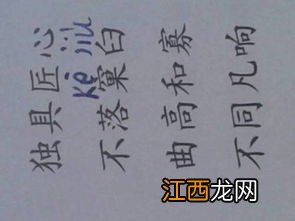 独具匠心
kē jiù
不落窠臼
曲高和寡
不同凡响
江西龙网